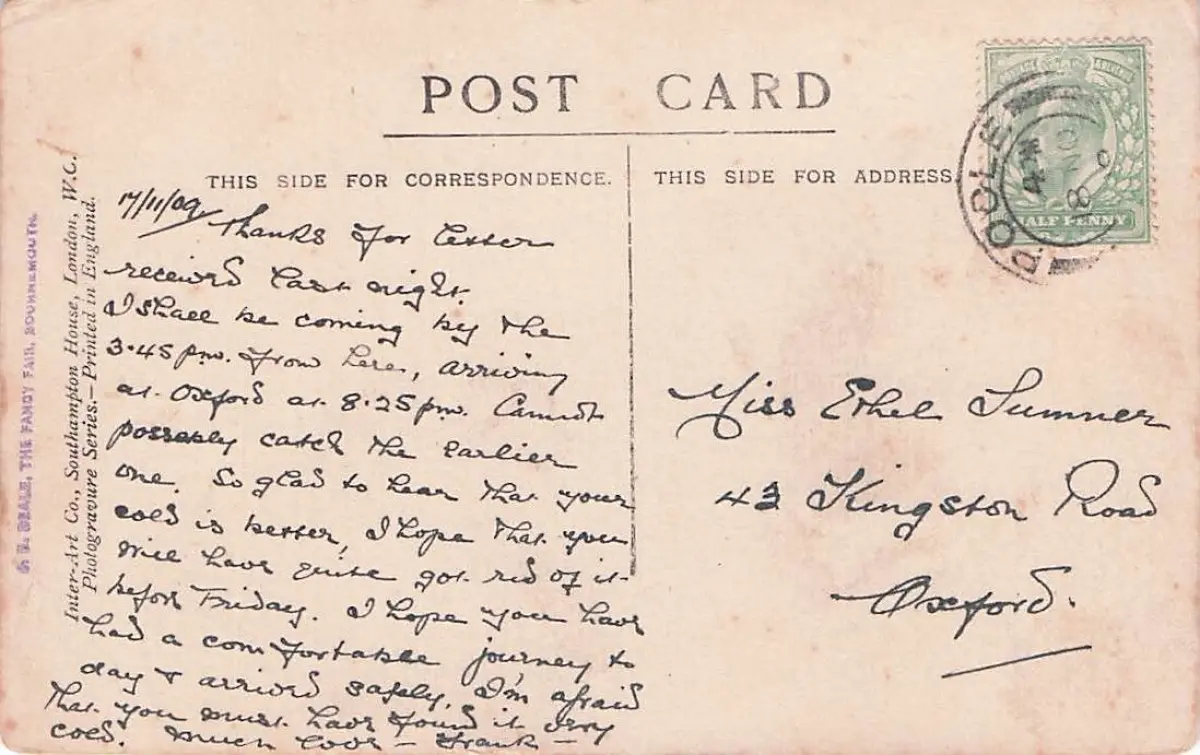 POST CARD
THIS SIDE FOR CORRESPONDENCE.
THIS SIDE FOR ADDRESS
17/11/09
Thanks for letter
received last night.
I shall be coming by the
3.45 pm. from here, arriving
at Oxford at 8.25 pm. Cannot
possibly catch the earlier
one. So glad to hear that your
cold is better, I hope that you
will have quite got rid of it
before Friday. I hope you have
had a comfortable journey to
day & arrived safely. I'm afraid
that you must have found it very
cold. Much love — Frank —
Miss Ethel Sumner
43 Kingston Road
Oxford.
POOLE
HALF PENNY
Inter-Art Co., Southampton House, London, W.C.
Photogravure Series.—Printed in England.
BEALE, THE FANCY FAIR, BOURNEMOUTH.